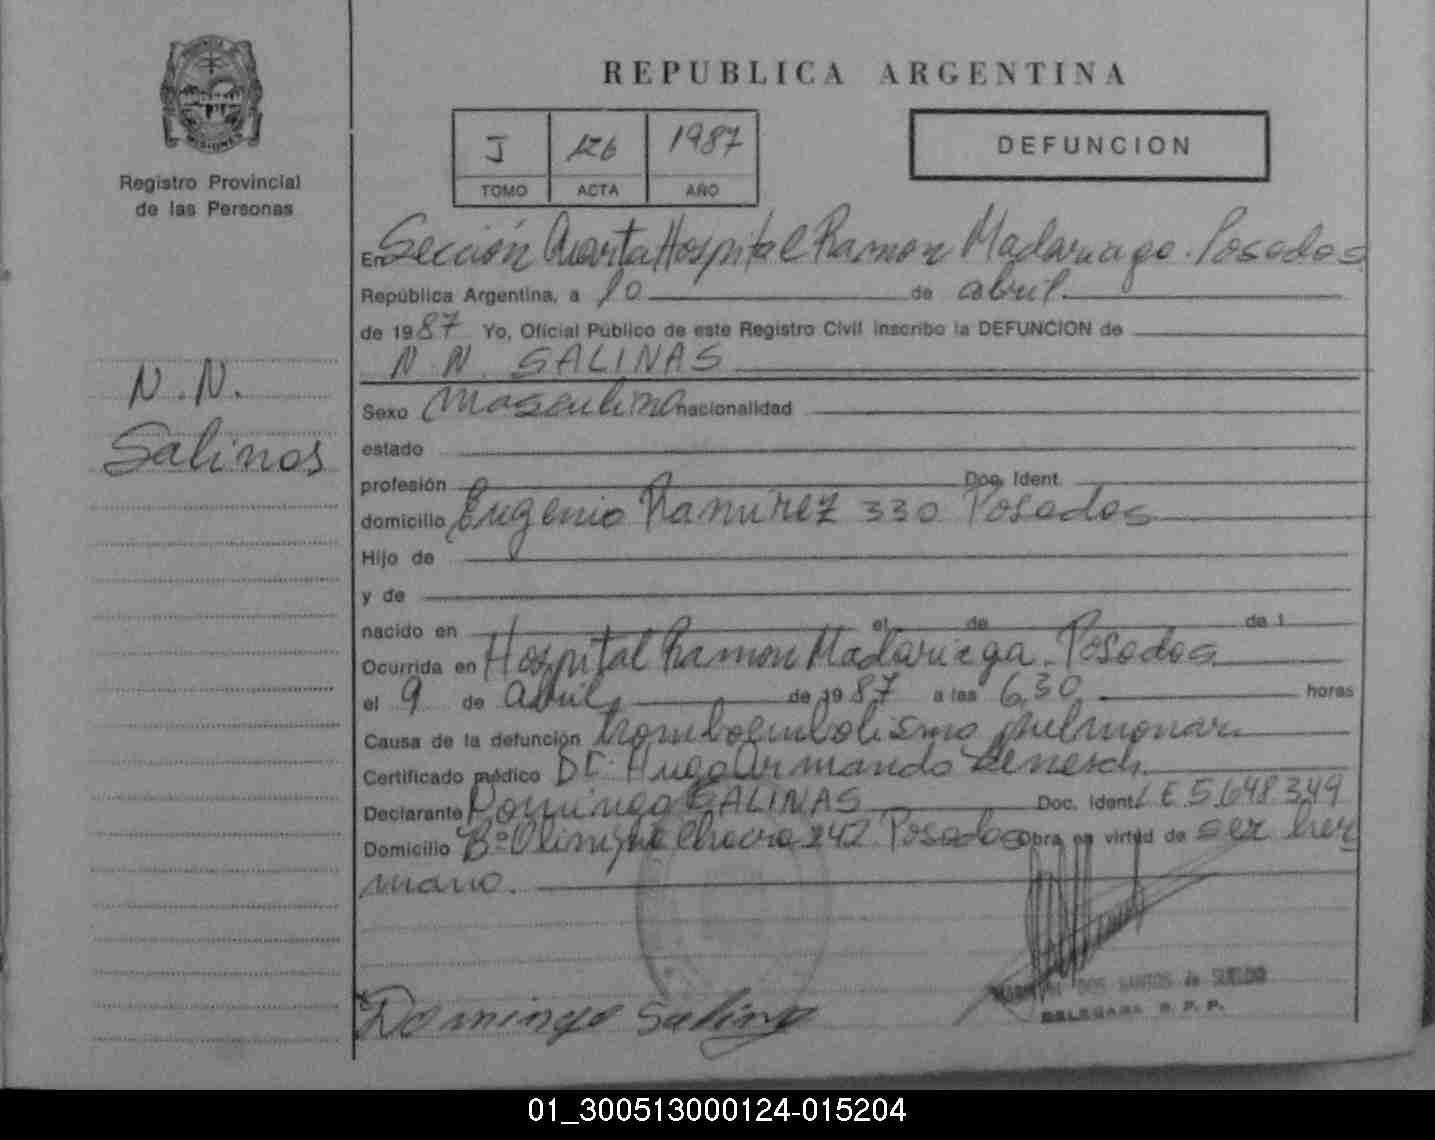 REPUBLICA ARGENTINA
J 126 1987
TOMO ACTA AÑO
DEFUNCION
MISIONES
Registro Provincial
de las Personas
N.N.
Salinas
En Sección Cuarta Hospital Ramon Madariaga. Posadas
República Argentina, a 10 de abril.
de 1987 Yo, Oficial Público de este Registro Civil inscribo la DEFUNCION de
N N SALINAS
Sexo Masculino nacionalidad
estado
profesión Doc. Ident.
domicilio Eugenio Ramirez 330 Posadas
Hijo de
y de
nacido en el de de 1
Ocurrida en Hospital Ramon Madariaga. Posadas
el 9 de abril, de 1987 a las 6,30 horas
Causa de la defunción tromboembolismo pulmonar
Certificado médico Dr. Hugo Armando
Declarante Domingo SALINAS Doc. Ident. LE 5.648.349
Domicilio Bº Chacra 242 Posadas Obra en virtud de ser her
mano.
Domingo Salina
DOS SANTOS de SUELDO
DELEGADA R. P. P.
01_300513000124-015204